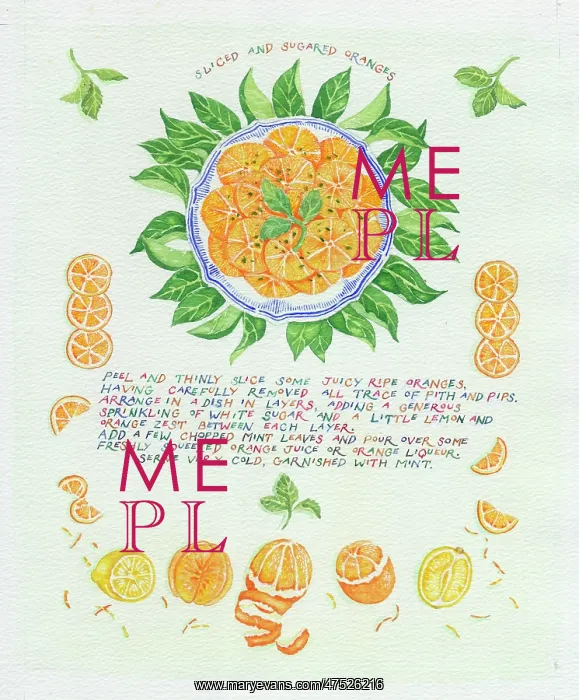 SLICED AND SUGARED ORANGES
ME
PL
PEEL AND THINLY SLICE SOME JUICY RIPE ORANGES,
HAVING CAREFULLY REMOVED ALL TRACE OF PITH AND PIPS.
ARRANGE IN A DISH IN LAYERS, ADDING A GENEROUS
SPRINKLING OF WHITE SUGAR AND A LITTLE LEMON AND
ORANGE ZEST BETWEEN EACH LAYER.
ADD A FEW CHOPPED MINT LEAVES AND POUR OVER SOME
FRESHLY SQUEEZED ORANGE JUICE OR ORANGE LIQUEUR.
SERVE VERY COLD, GARNISHED WITH MINT.
ME
PL
www.maryevans.com/47526216